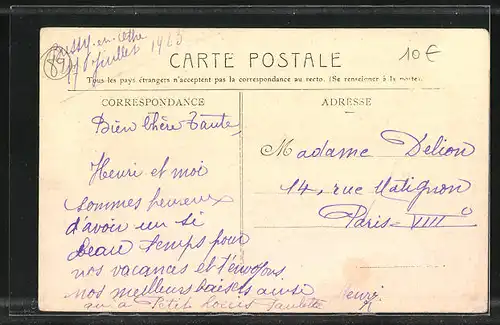 Bussy-en-Othe 1923
89
17 Juillet
10€
CARTE POSTALE
Tous les pays étrangers n'acceptent pas la correspondance au recto. (Se renseigner à la poste).
CORRESPONDANCE
ADRESSE
Bien Chère Tante,
Henri et moi
sommes heureux
d'avoir un si
beau temps pour
nos vacances et t'envoyons
nos meilleurs baisers ainsi
qu'à Petit Louis Paulette
Henri
Madame Delion
14, rue Matignon
Paris - VIII e